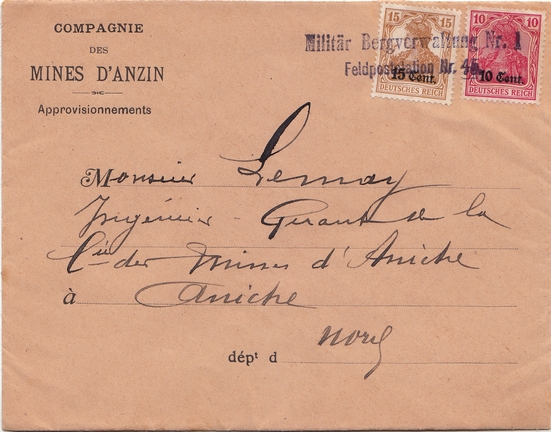 COMPAGNIE
DES
MINES D'ANZIN
Approvisionnements
Militär Bergverwaltung Nr. 1
Feldpoststation Nr. 45
15 15
15 Cent.
DEUTSCHES REICH
10 10
10 Cent.
DEUTSCHES REICH
Monsieur Lemay
Ingénieur - Gérant de la
Cie des Mines d'Aniche
à Aniche
dépt d Nord